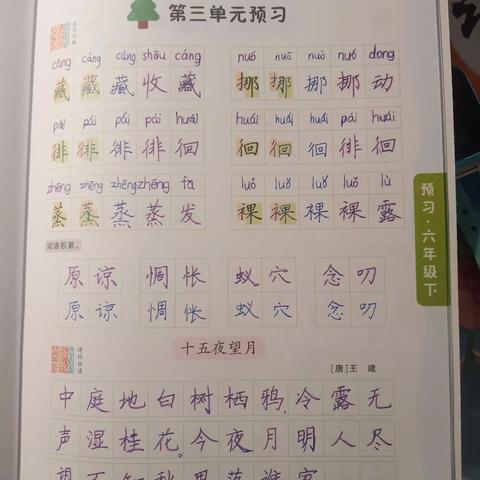 第三单元预习
cáng cáng cáng shōu cáng nuó nuó nuó nuó dòng
藏 藏 藏 收 藏 挪 挪 挪 挪 动
pái pái pái pái huái huái huái huái pái huái
徘 徘 徘 徘 徊 徊 徊 徊 徘 徊
zhēng zhēng zhēng zhēng fā luǒ luǒ luǒ luǒ lù
蒸 蒸 蒸 蒸 发 裸 裸 裸 裸 露
词语积累。
原谅 惆怅 蚁穴 念叨
原谅 惆怅 蚁穴 念叨
十五夜望月
[唐]王 建
中庭地白树栖鸦,冷露无
声湿桂花。今夜月明人尽
望不知秋思落谁家
预习·六年级下